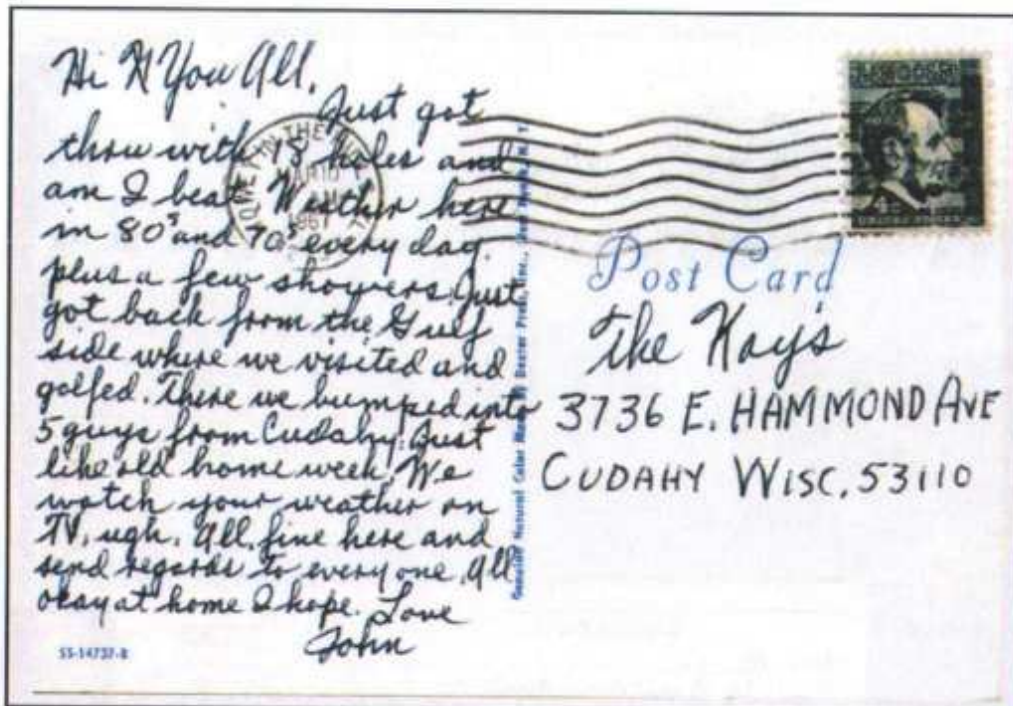 Hi A You All,
Just got
thru with 18 holes and
am I beat Weather here
in 80's and 70's every day
plus a few showers. Just
got back from the Gulf
side where we visited and
golfed. There we bumped into
5 guys from Cudahy. Just
like old home week. We
watch your weather on
TV, ugh. All fine here and
send regards to everyone. All
okay at home I hope. Love
John
SS-14737-B
MAR 10
AM
Post Card
The Kay's
3736 E. HAMMOND AVE
CUDAHY WISC. 53110